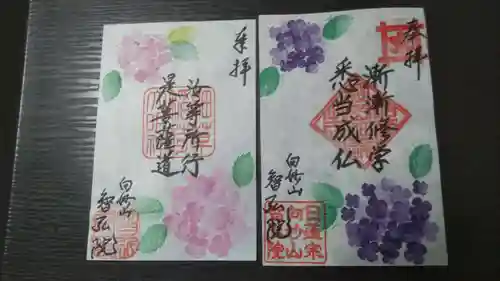 奉拝
汝等所行
是菩薩道
白妙山
智弘院
奉拝
漸漸修学
悉当成仏
白妙山
智弘院
日蓮宗
白妙山